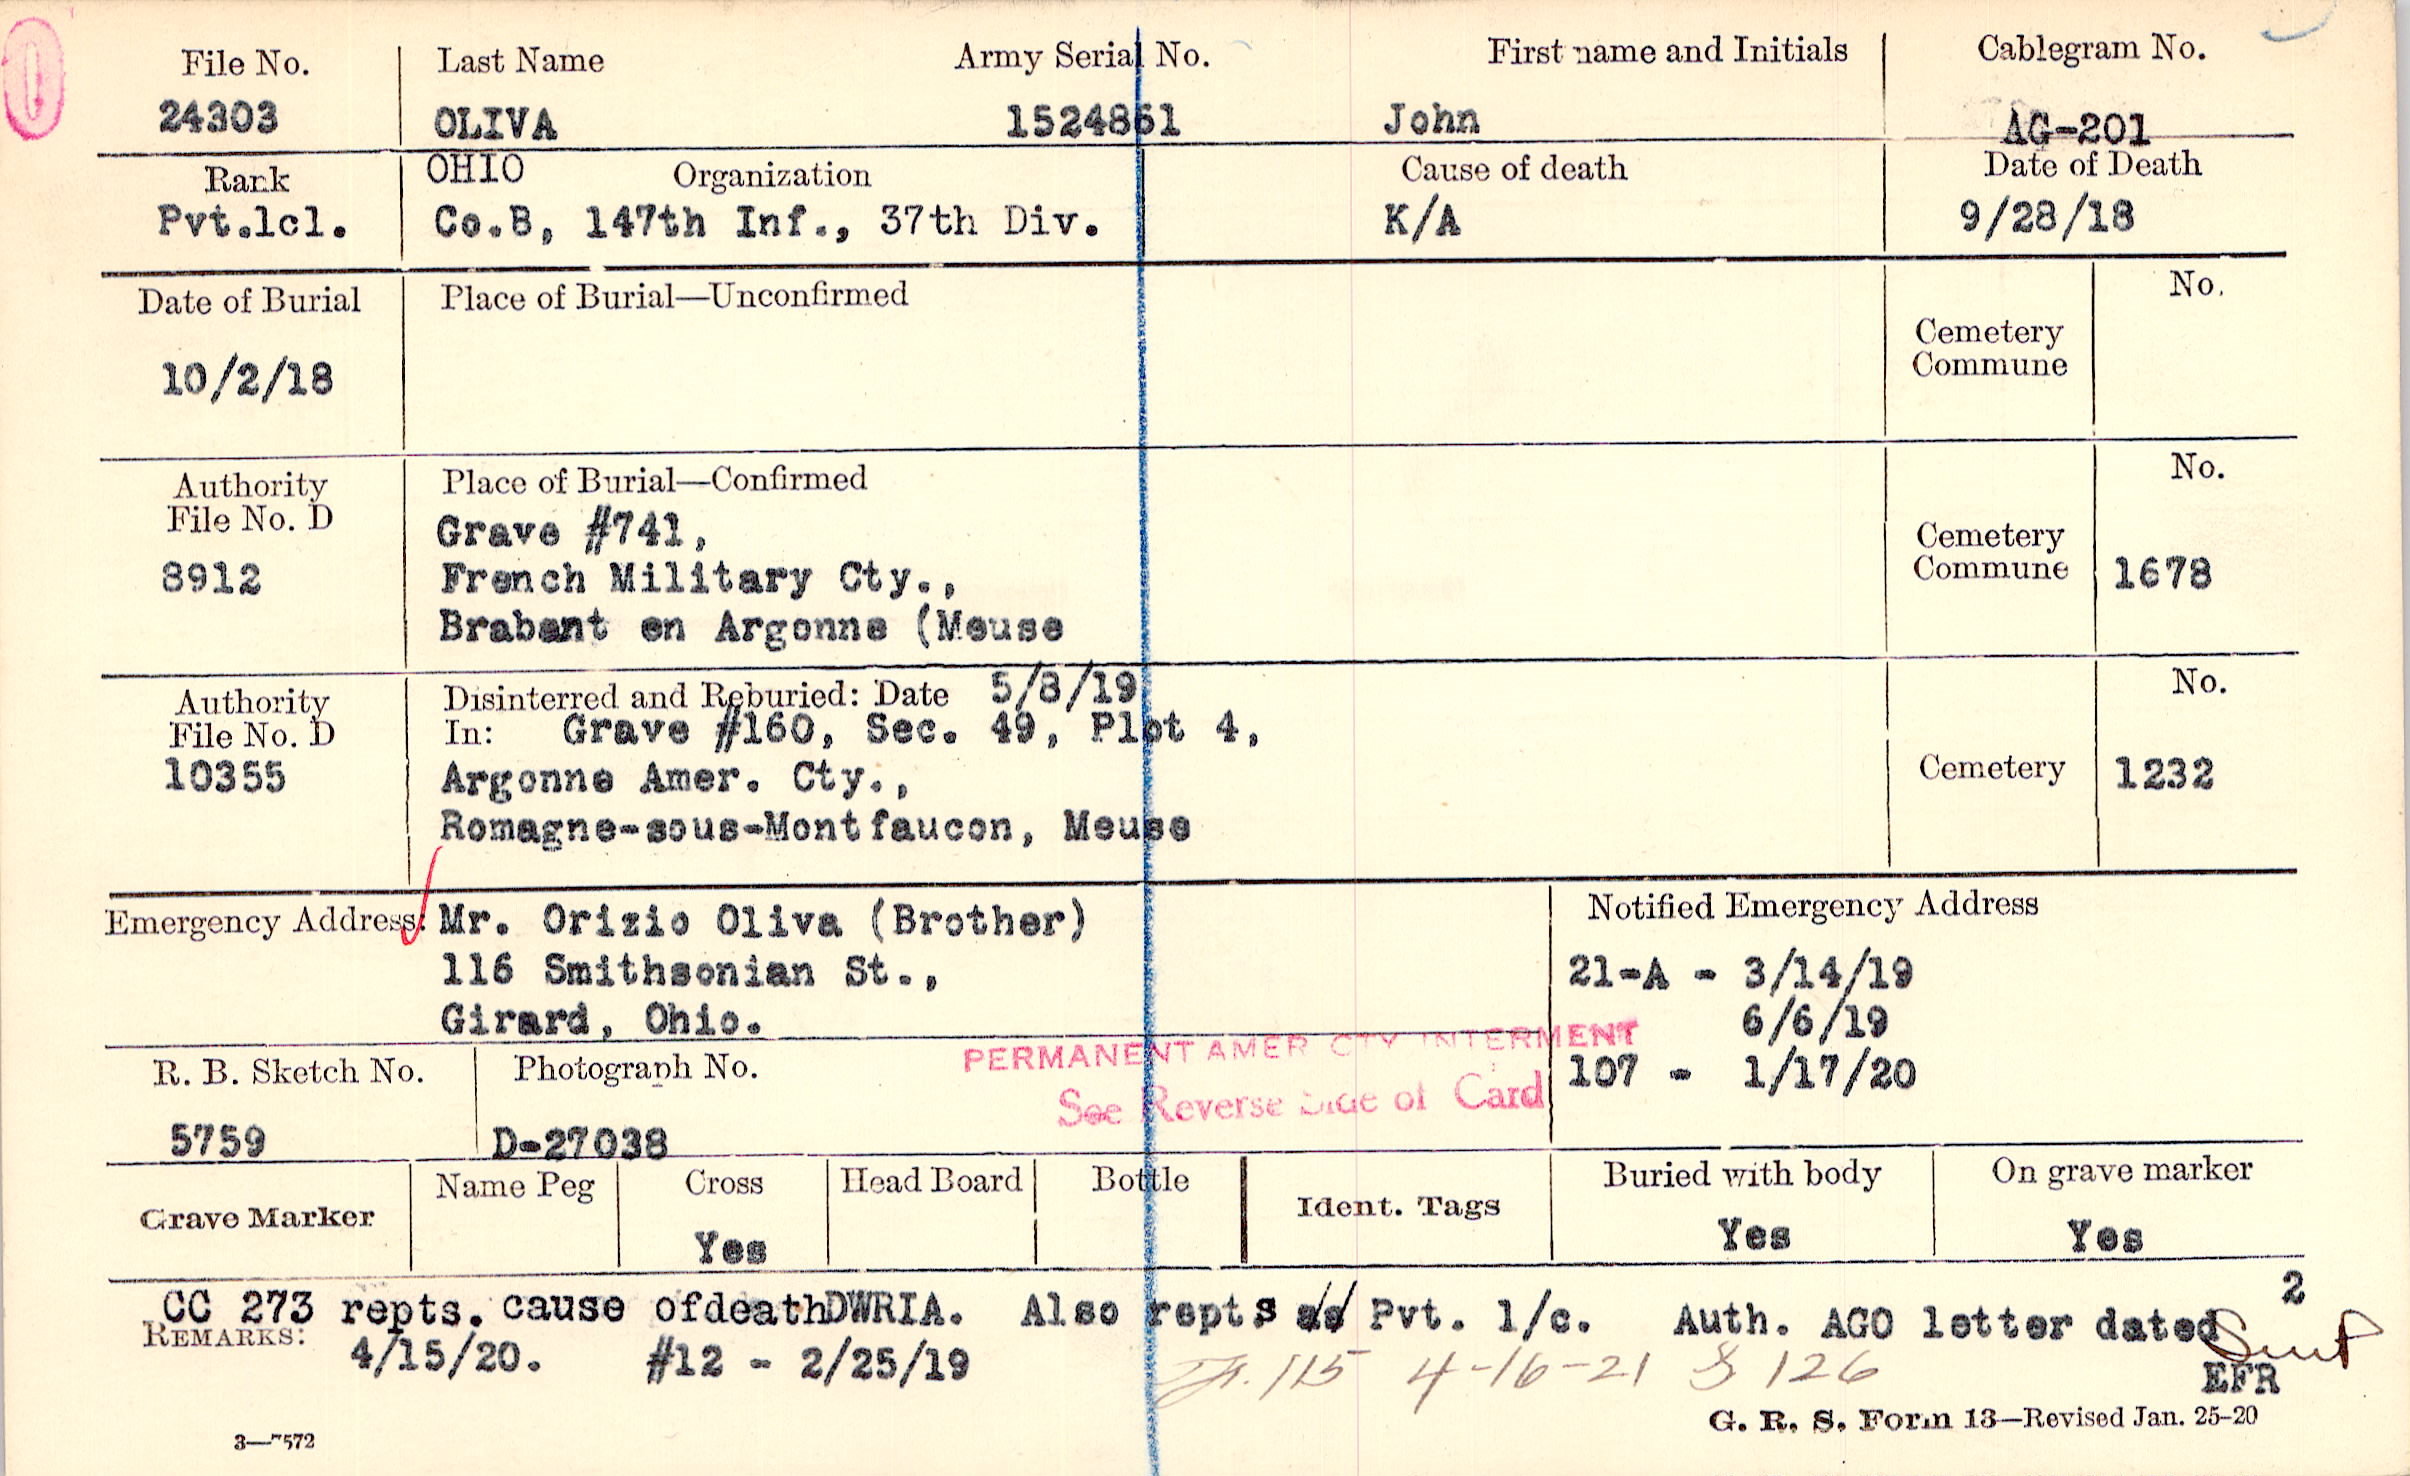 File No. Last Name Army Serial No. First name and Initials Cablegram No.
24303 OLIVA 1524861 John AG-201
Rank OHIO Organization Cause of death Date of Death
Pvt.1cl. Co.B, 147th Inf., 37th Div. K/A 9/28/18
Date of Burial Place of Burial—Unconfirmed No.
Cemetery
Commune
10/2/18
Authority Place of Burial—Confirmed No.
File No. D Grave #741, Cemetery
8912 French Military Cty., Commune 1678
Brabant en Argonne (Meuse
Authority Disinterred and Reburied: Date 5/8/19 No.
File No. D In: Grave #160, Sec. 49, Plot 4,
10355 Argonne Amer. Cty., Cemetery 1232
Romagne-sous-Montfaucon, Meuse
Emergency Address: Mr. Orizio Oliva (Brother) Notified Emergency Address
116 Smithsonian St., 21-A - 3/14/19
Girard, Ohio. 6/6/19
PERMANENT AMER CTY INTERMENT
R. B. Sketch No. Photograph No. 107 - 1/17/20
See Reverse Side of Card
5759 D-27038
Grave Marker Name Peg Cross Head Board Bottle Ident. Tags Buried with body On grave marker
Yes Yes Yes
2
CC 273 repts. cause ofdeathDWRIA. Also repts as Pvt. 1/c. Auth. AGO letter dated
REMARKS: 4/15/20. #12 - 2/25/19
115 4-16-21 126
EFR
G. R. S. Form 13—Revised Jan. 25-20
3—7572